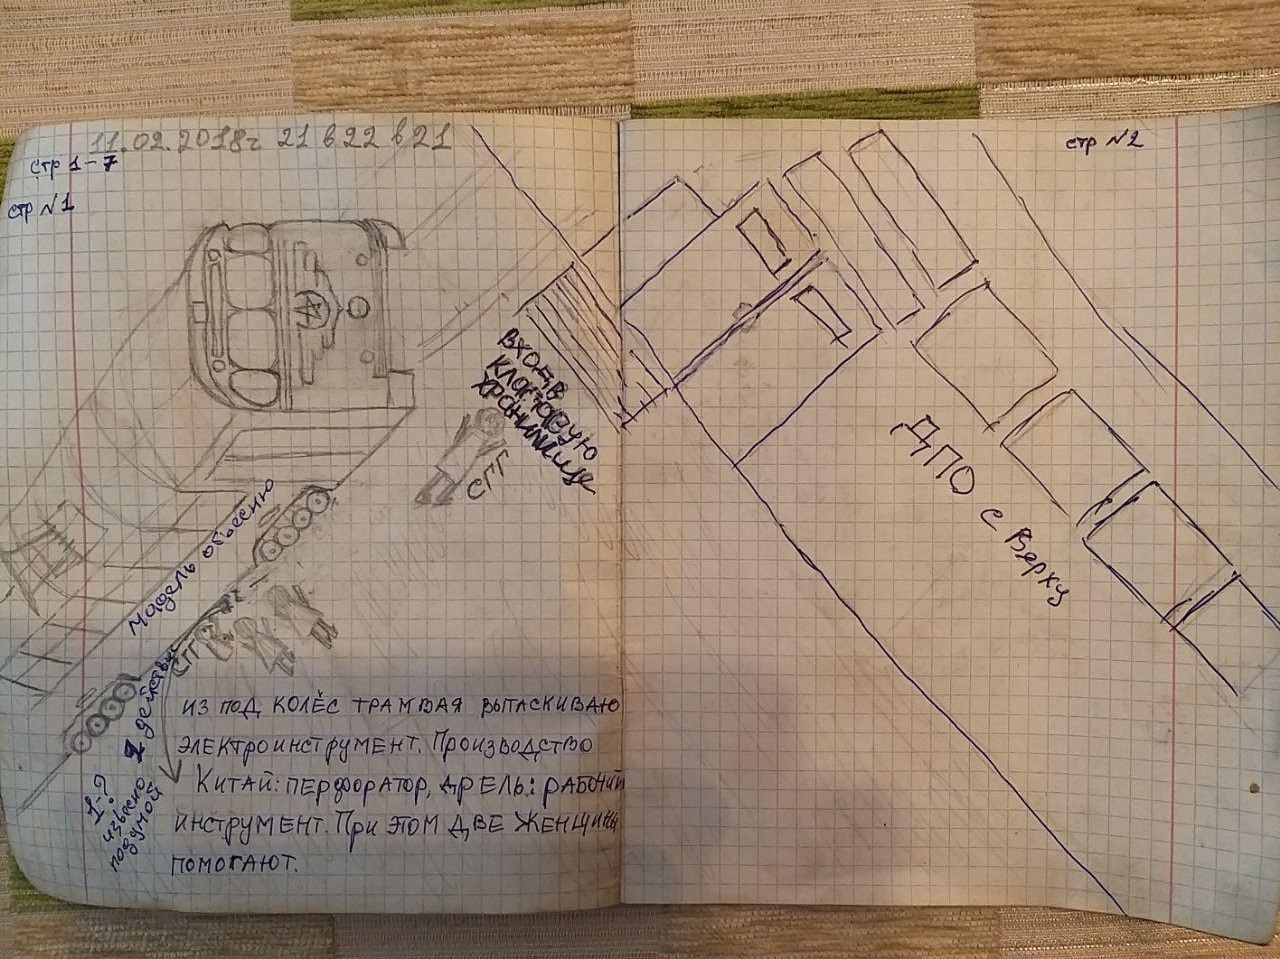 11.02.2018г 21 в 22 в 21
стр 1-7
стр N1
стр N2
ВХОД В
КЛАДОВУЮ
ХРАНИЛИЩЕ
СГГ
Модель обьесню
СГГ
2 действие
1-?
извесно
подумой
ИЗ ПОД КОЛЁС ТРАМВАЯ ВЫТАСКИВАЮ
ЭЛЕКТРОИНСТРУМЕНТ. ПРОИЗВОДСТВО
КИТАЙ: ПЕРФОРАТОР, ДРЕЛЬ: РАБОЧИЙ
ИНСТРУМЕНТ. ПРИ ЭТОМ ДВЕ ЖЕНЩИНЫ
ПОМОГАЮТ.
ДПО с Вярху